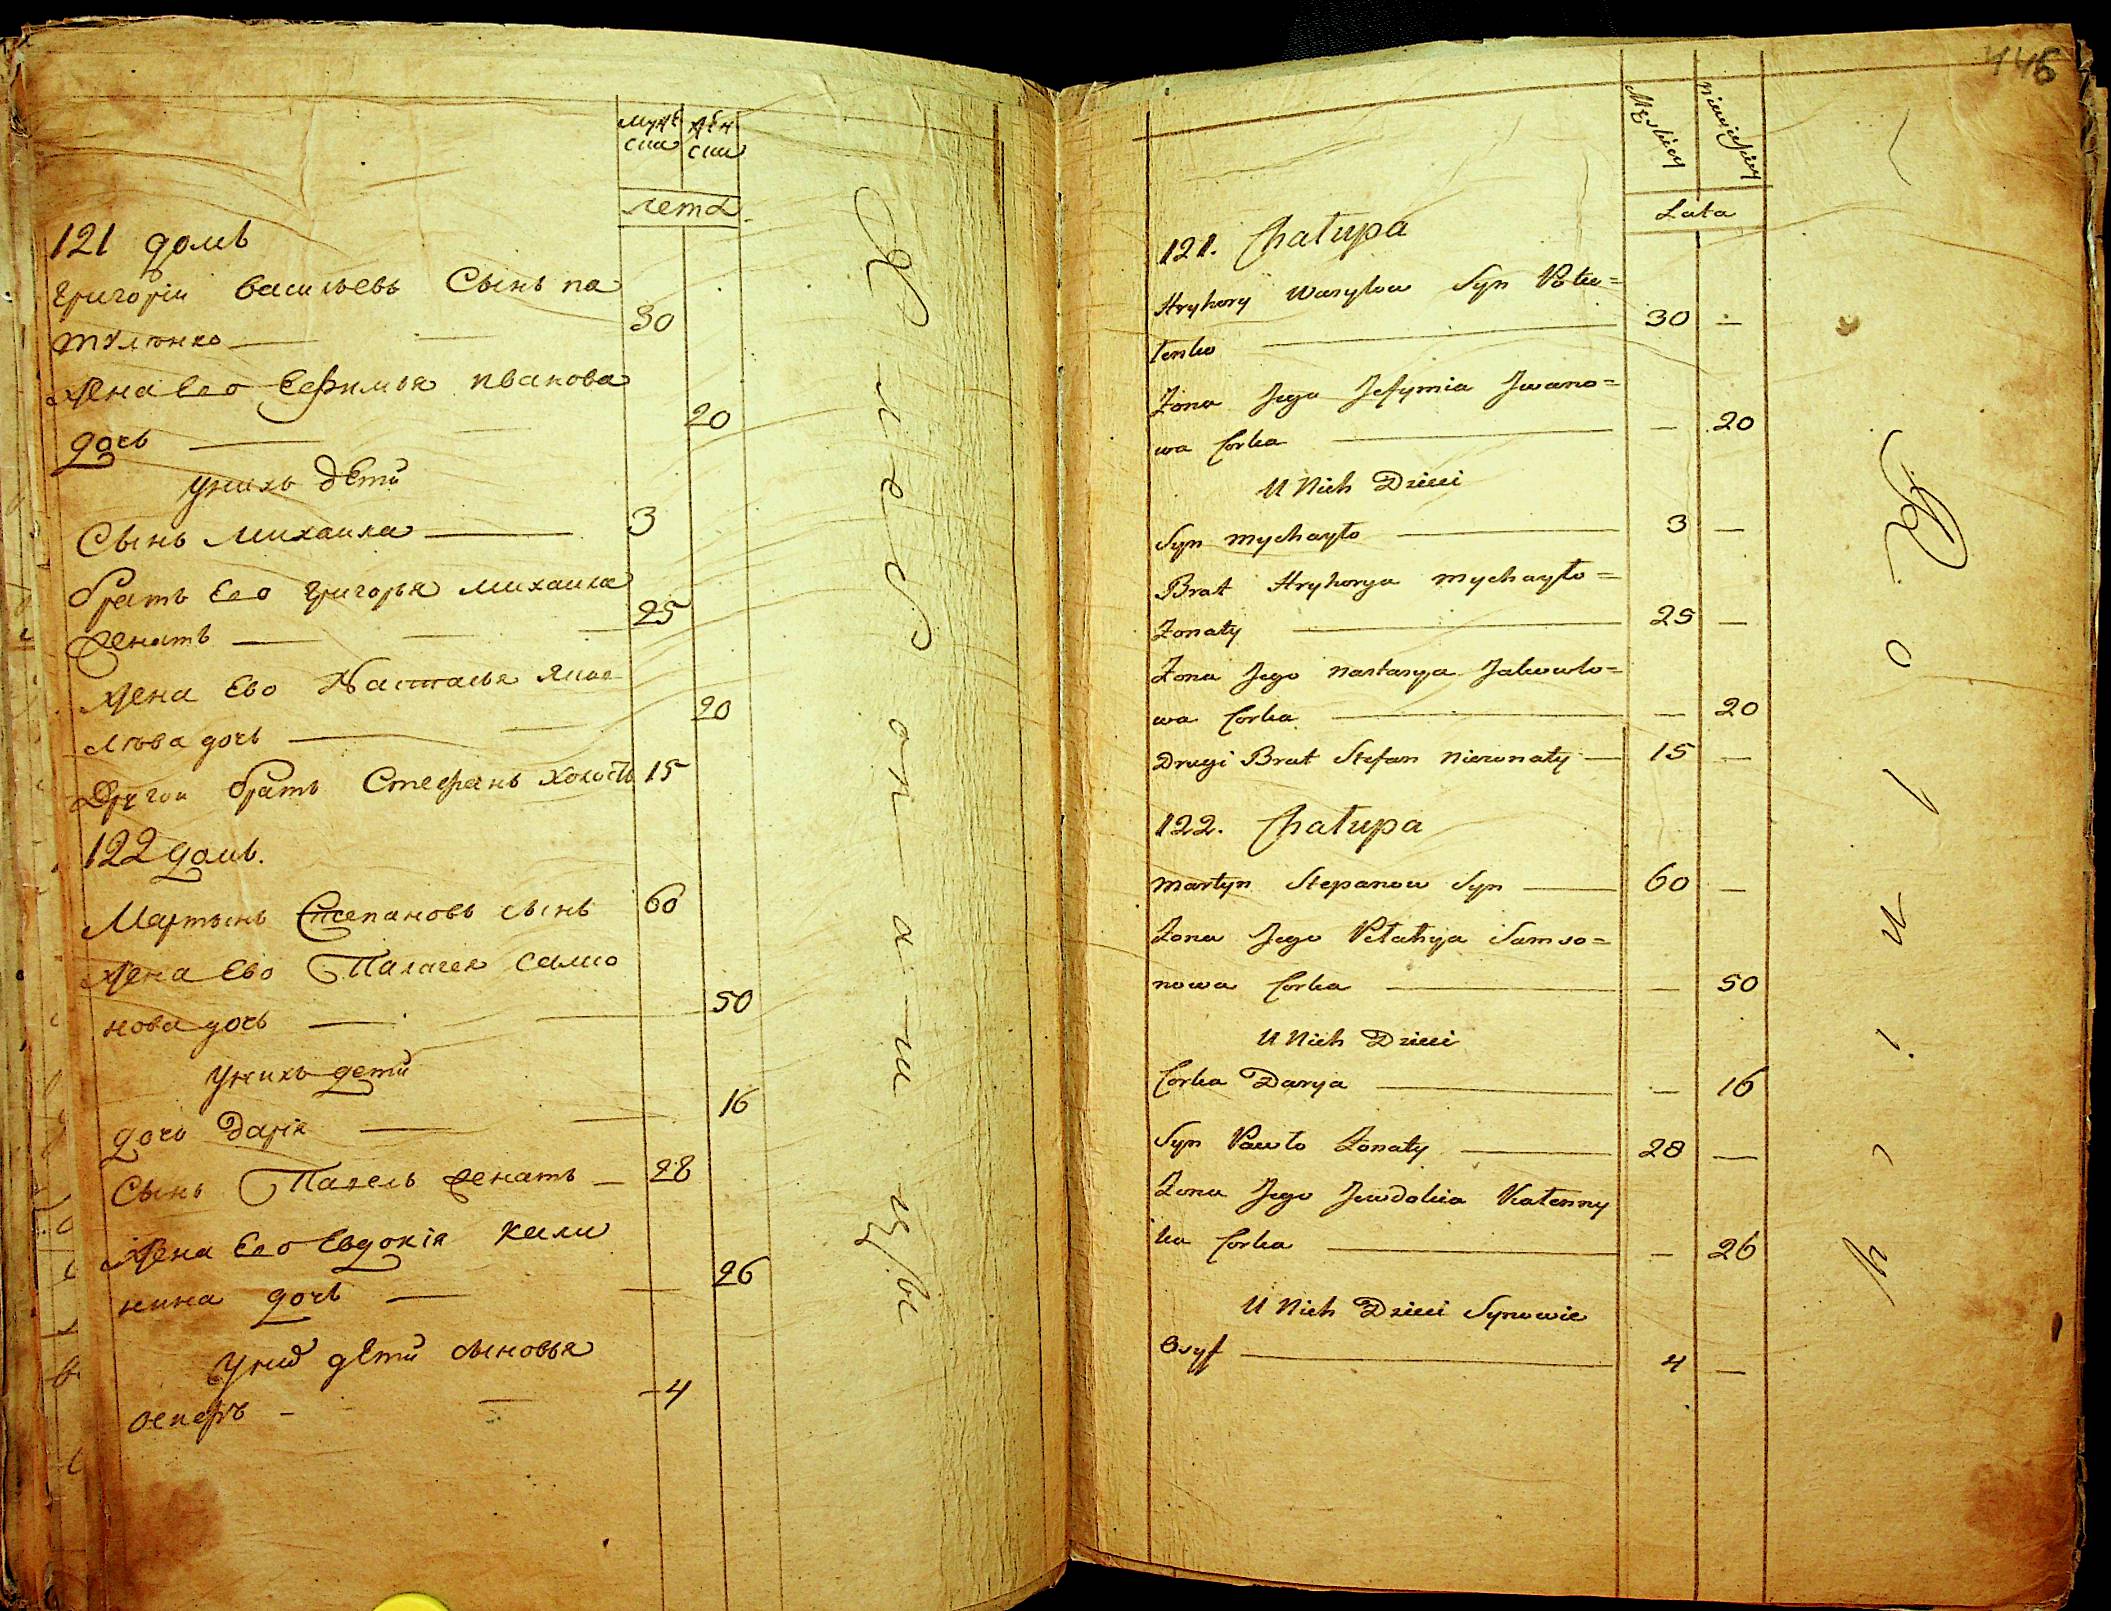 мужс
ска
женс
ска
лета
121 домъ
Григорїи Васильевъ Сынъ па
тѣленко
30
Жена Его Еѳимья иванова
дочь
20
унихъ дѣти
Сынъ михаила
3
братъ Его григорья михаила
женатъ
25
Жена Ево Настасья яков
лѣва дочь
20
Другои братъ Стефанъ холостъ 15
122 домъ.
Мартынъ Степановъ сынъ 60
Жена Ево Палагея самсо
нова дочь
50
унихъ дети
дочь Дарїя
16
Сынъ Павелъ женатъ 28
Жена Его Евдокїя кали
нина дочь
26
у них дѣти сыновья
осипъ
4
Хлебопашцы
446
Męskiey
Niewieskiey
Lata
121. Chałupa
Hryhory Wasylow Syn Pote=
lenko
30 —
Żona Jego Jefymia Jwano=
wa Corka — 20
U Nich Dzieci
Syn Mychayło 3 —
Brat Hryhorya Mychayło=
Żonaty 25 —
Żona Jego Nastasya Jakowlo=
wa Corka — 20
Drugi Brat Stefan Nieżonaty — 15 —
122. Chałupa
Martyn Stepanow Syn 60 —
Żona Jego Pełahya Samso=
nowa Corka — 50
U Nich Dzieci
Corka Darya — 16
Syn Pawło Żonaty 28 —
Żona Jego Jewdokia Kałenny
ka Corka — 26
U Nich Dzieci Synowie
Osyf 4 —
Rolnicy